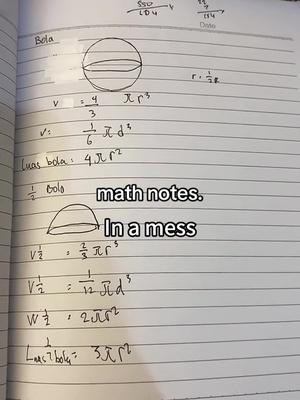 Date
Bola
r = 1/2 d
V = 4/3 πr³
V: 1/6 πd³
Luas bola: 4πr²
1/2 Bola
math notes.
In a mess
V 1/2 = 2/3 πr³
V 1/2 = 1/12 πd³
1/2 : 2πr²
Luas 1/2 bola = 3πr²